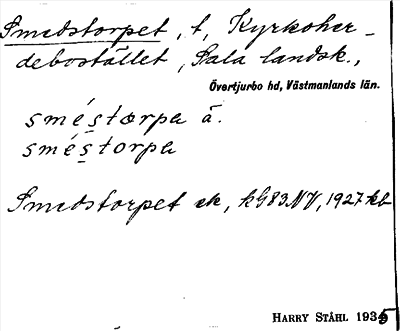 Smedstorpet, t, Kyrkoher-
debostället, Sala landsk.,
Övertjurbo hd, Västmanlands län.
smés̲torpa ä.
smés̲torpa
Smedstorpet ek, kG83NV, 1927 kb
HARRY STÅHL 1935